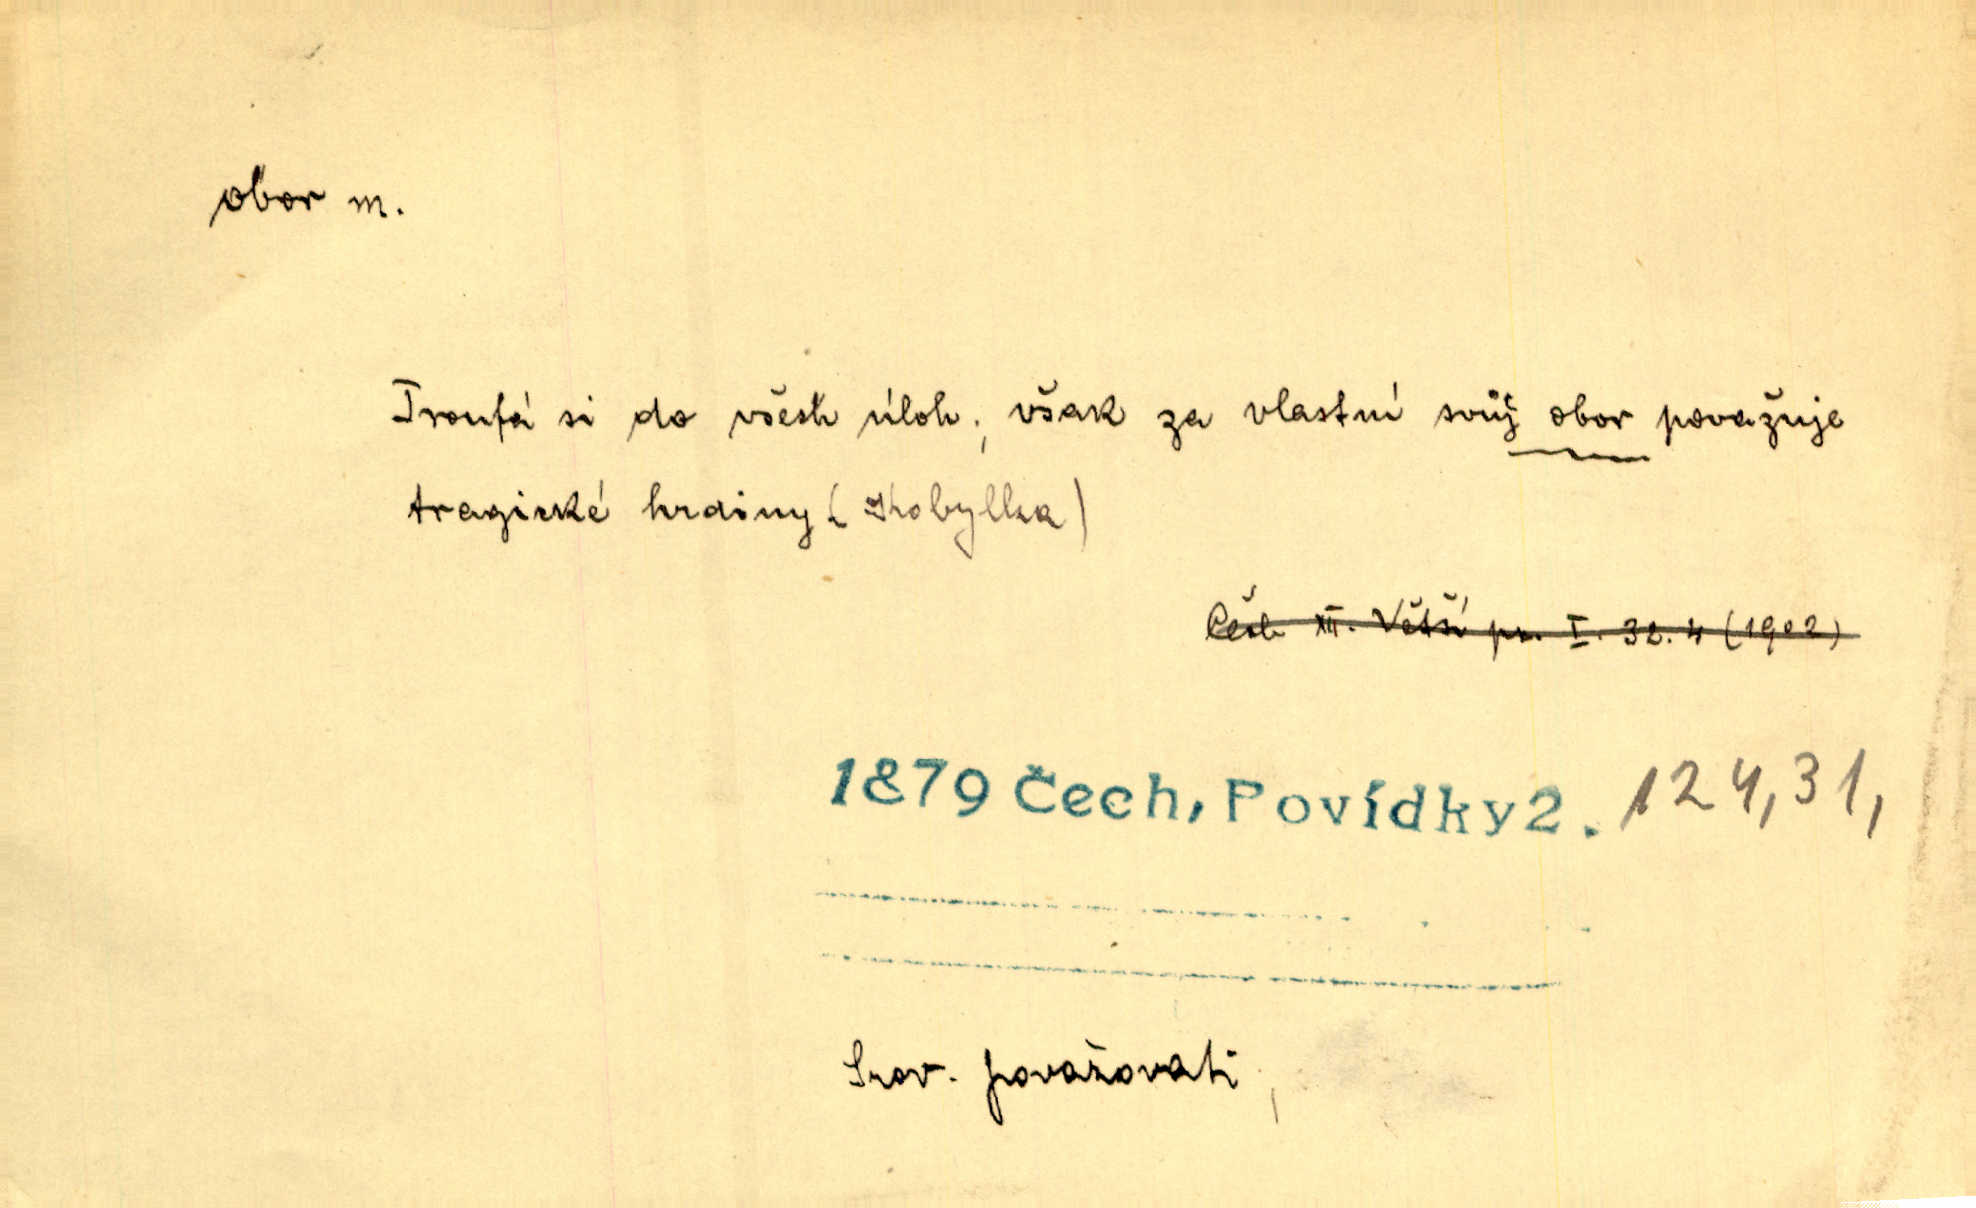 obor m.
Troufá si do všech úloh, však za vlastní svůj obor považuje
tragické hrdiny (Kobylka)
Čech XII. Větší pr. I. 32.4 (1902)
1879 Čech, Povídky 2. 124,31,
Srov. považovati,